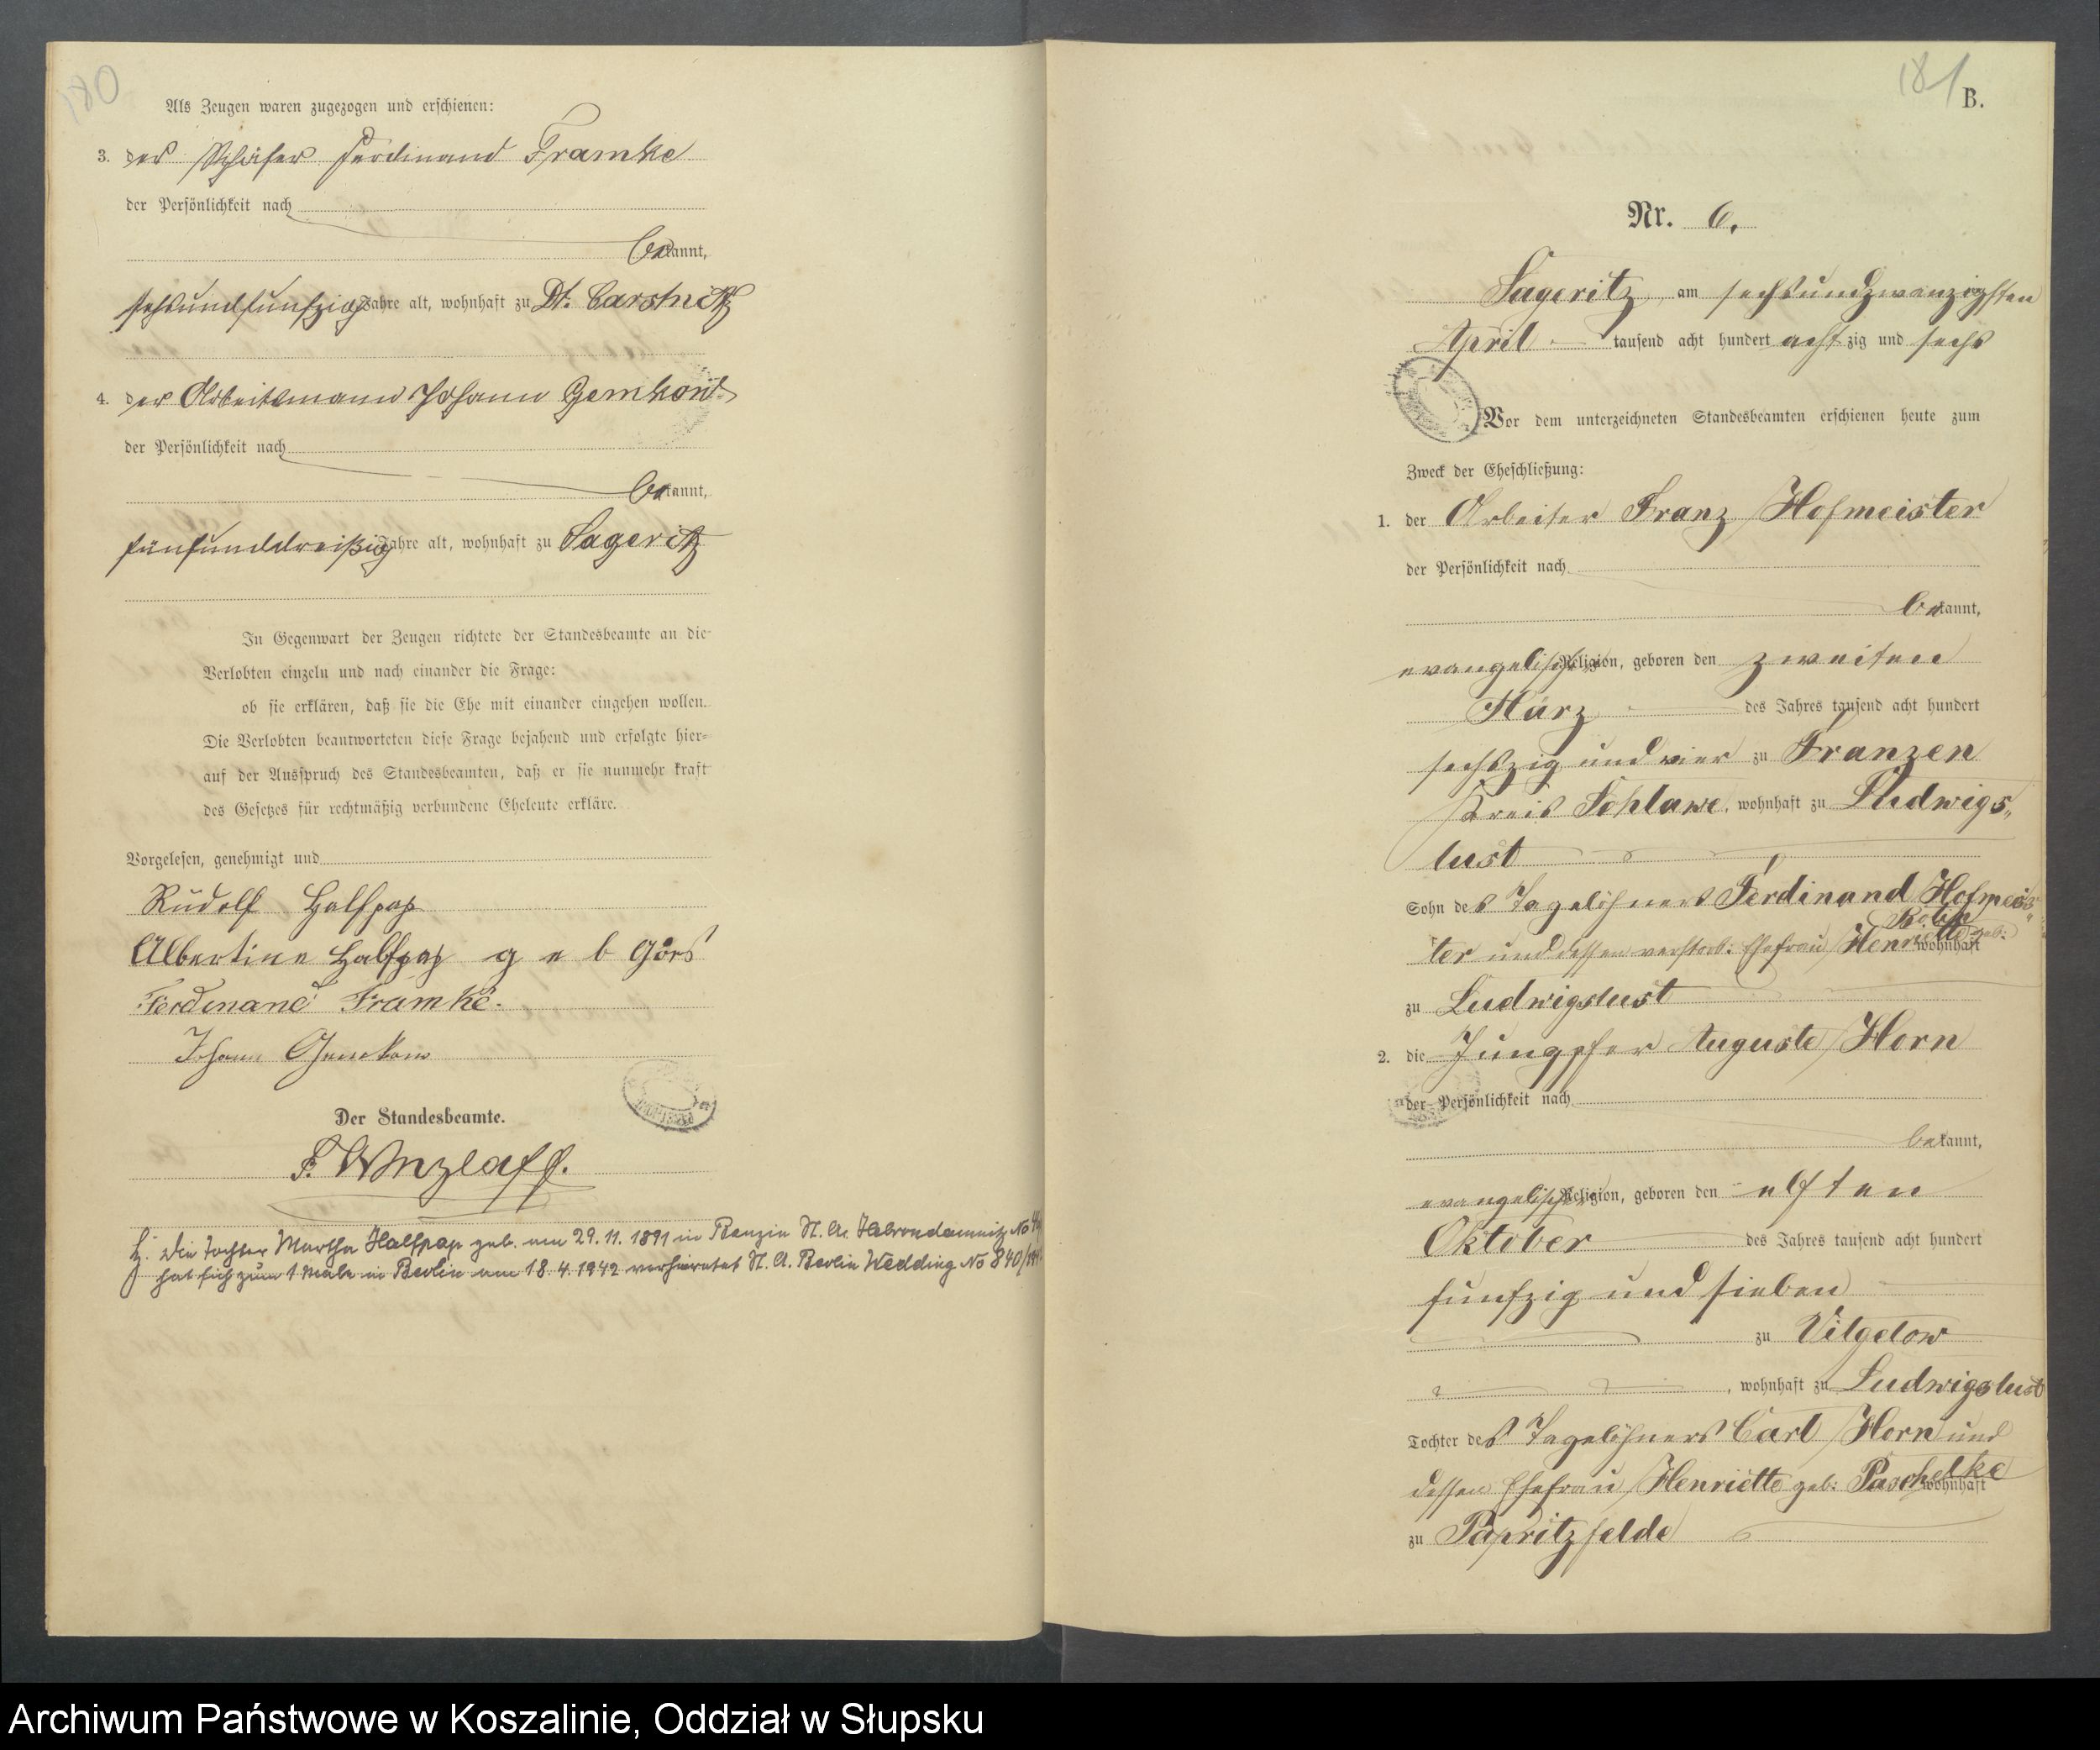 180
Als Zeugen waren zugezogen und erschienen:
3. der Schäfer Ferdinand Framke
der Persönlichkeit nach
bekannt,
sechsundfünfzig Jahre alt, wohnhaft zu Dt. Carstnitz
4. der Arbeitsmann Johann Gemkow
der Persönlichkeit nach
bekannt,
fünfunddreißig Jahre alt, wohnhaft zu Sageritz
In Gegenwart der Zeugen richtete der Standesbeamte an die
Verlobten einzeln und nach einander die Frage:
ob sie erklären, daß sie die Ehe mit einander eingehen wollen.
Die Verlobten beantworteten diese Frage bejahend und erfolgte hier-
auf der Ausspruch des Standesbeamten, daß er sie nunmehr kraft
des Gesetzes für rechtmäßig verbundene Eheleute erkläre.
Vorgelesen, genehmigt und
Rudolf Halfpap
Albertine Halfpap geb Görs
Ferdinand Framke.
Johann Gemkow
Der Standesbeamte.
F. Winzlaff.
H. Die Tochter Martha Halfpap geb. am 29.11.1891 in Benzin St. A. Hebrondamnitz No
hat sich zum 1 Male in Berlin am 18.4.1942 verheiratet St. A. Berlin Wedding No 840/
181
B.
Nr. 6.
Sageritz, am sechsundzwanzigsten
April tausend acht hundert achtzig und sechs
Vor dem unterzeichneten Standesbeamten erschienen heute zum
Zweck der Eheschließung:
1. der Arbeiter Franz Hofmeister
der Persönlichkeit nach
bekannt,
evangelischer Religion, geboren den zweiten
März des Jahres tausend acht hundert
sechszig und vier zu Franzen
Kreis Schlawe, wohnhaft zu Ludwigs„
lust
Sohn des Tagelöhners Ferdinand Hofmeis„
ter und dessen verstorb: Ehefrau Henriette geb: wohnhaft
zu Ludwigslust
2. die Jungpfer Auguste Horn
der Persönlichkeit nach
bekannt,
evangelischer Religion, geboren den elften
Oktober des Jahres tausend acht hundert
funfzig und sieben
zu Vilgelow
, wohnhaft zu Ludwigslust
Tochter des Tagelöhners Carl Horn und
dessen Ehefrau Henriette geb: Paschelke wohnhaft
zu Papritzfelde
Archiwum Państwowe w Koszalinie, Oddział w Słupsku